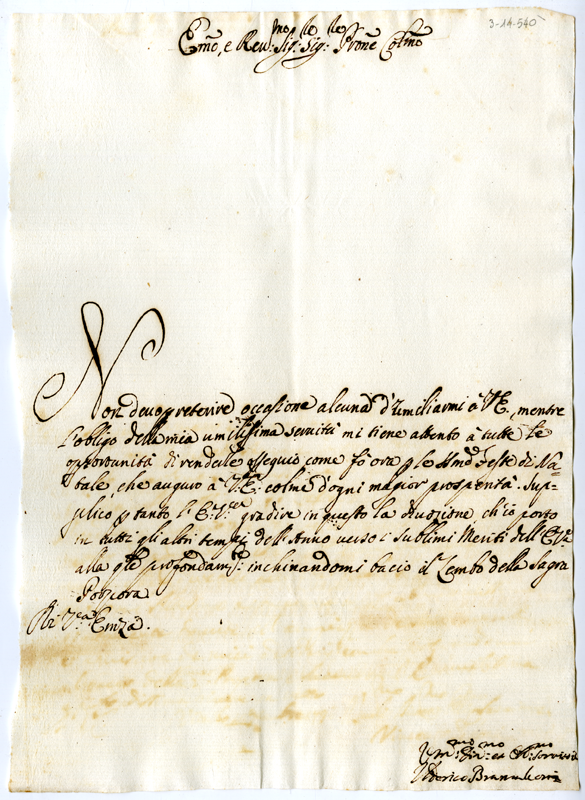 3-14-540
Emo, e Rev:mo Sig:le Sig:le Prone Colmo
Non devo preterire occasione alcuna d'umiliarmi à V.E., mentre
l'obligo della mia umilissima servitù mi tiene attento à tutte le
opportunità di renderle ossequio come fò ora p le Feste di Na=
tale, che auguro à V.E: colme d'ogni magior prosperità. Sup=
plico p tanto l'E: V:ra gradire in questo la divozione ch'io porto
in tutti gli altri tempi dell'Anno verso i Sublimi Meriti dell'E:V:
alla qle profondam:te inchinandomi bacio il Lembo della Sagra
Porpora
Di V:ra Emza.
Um:mo Div:mo et Obl:mo Servi
Federico